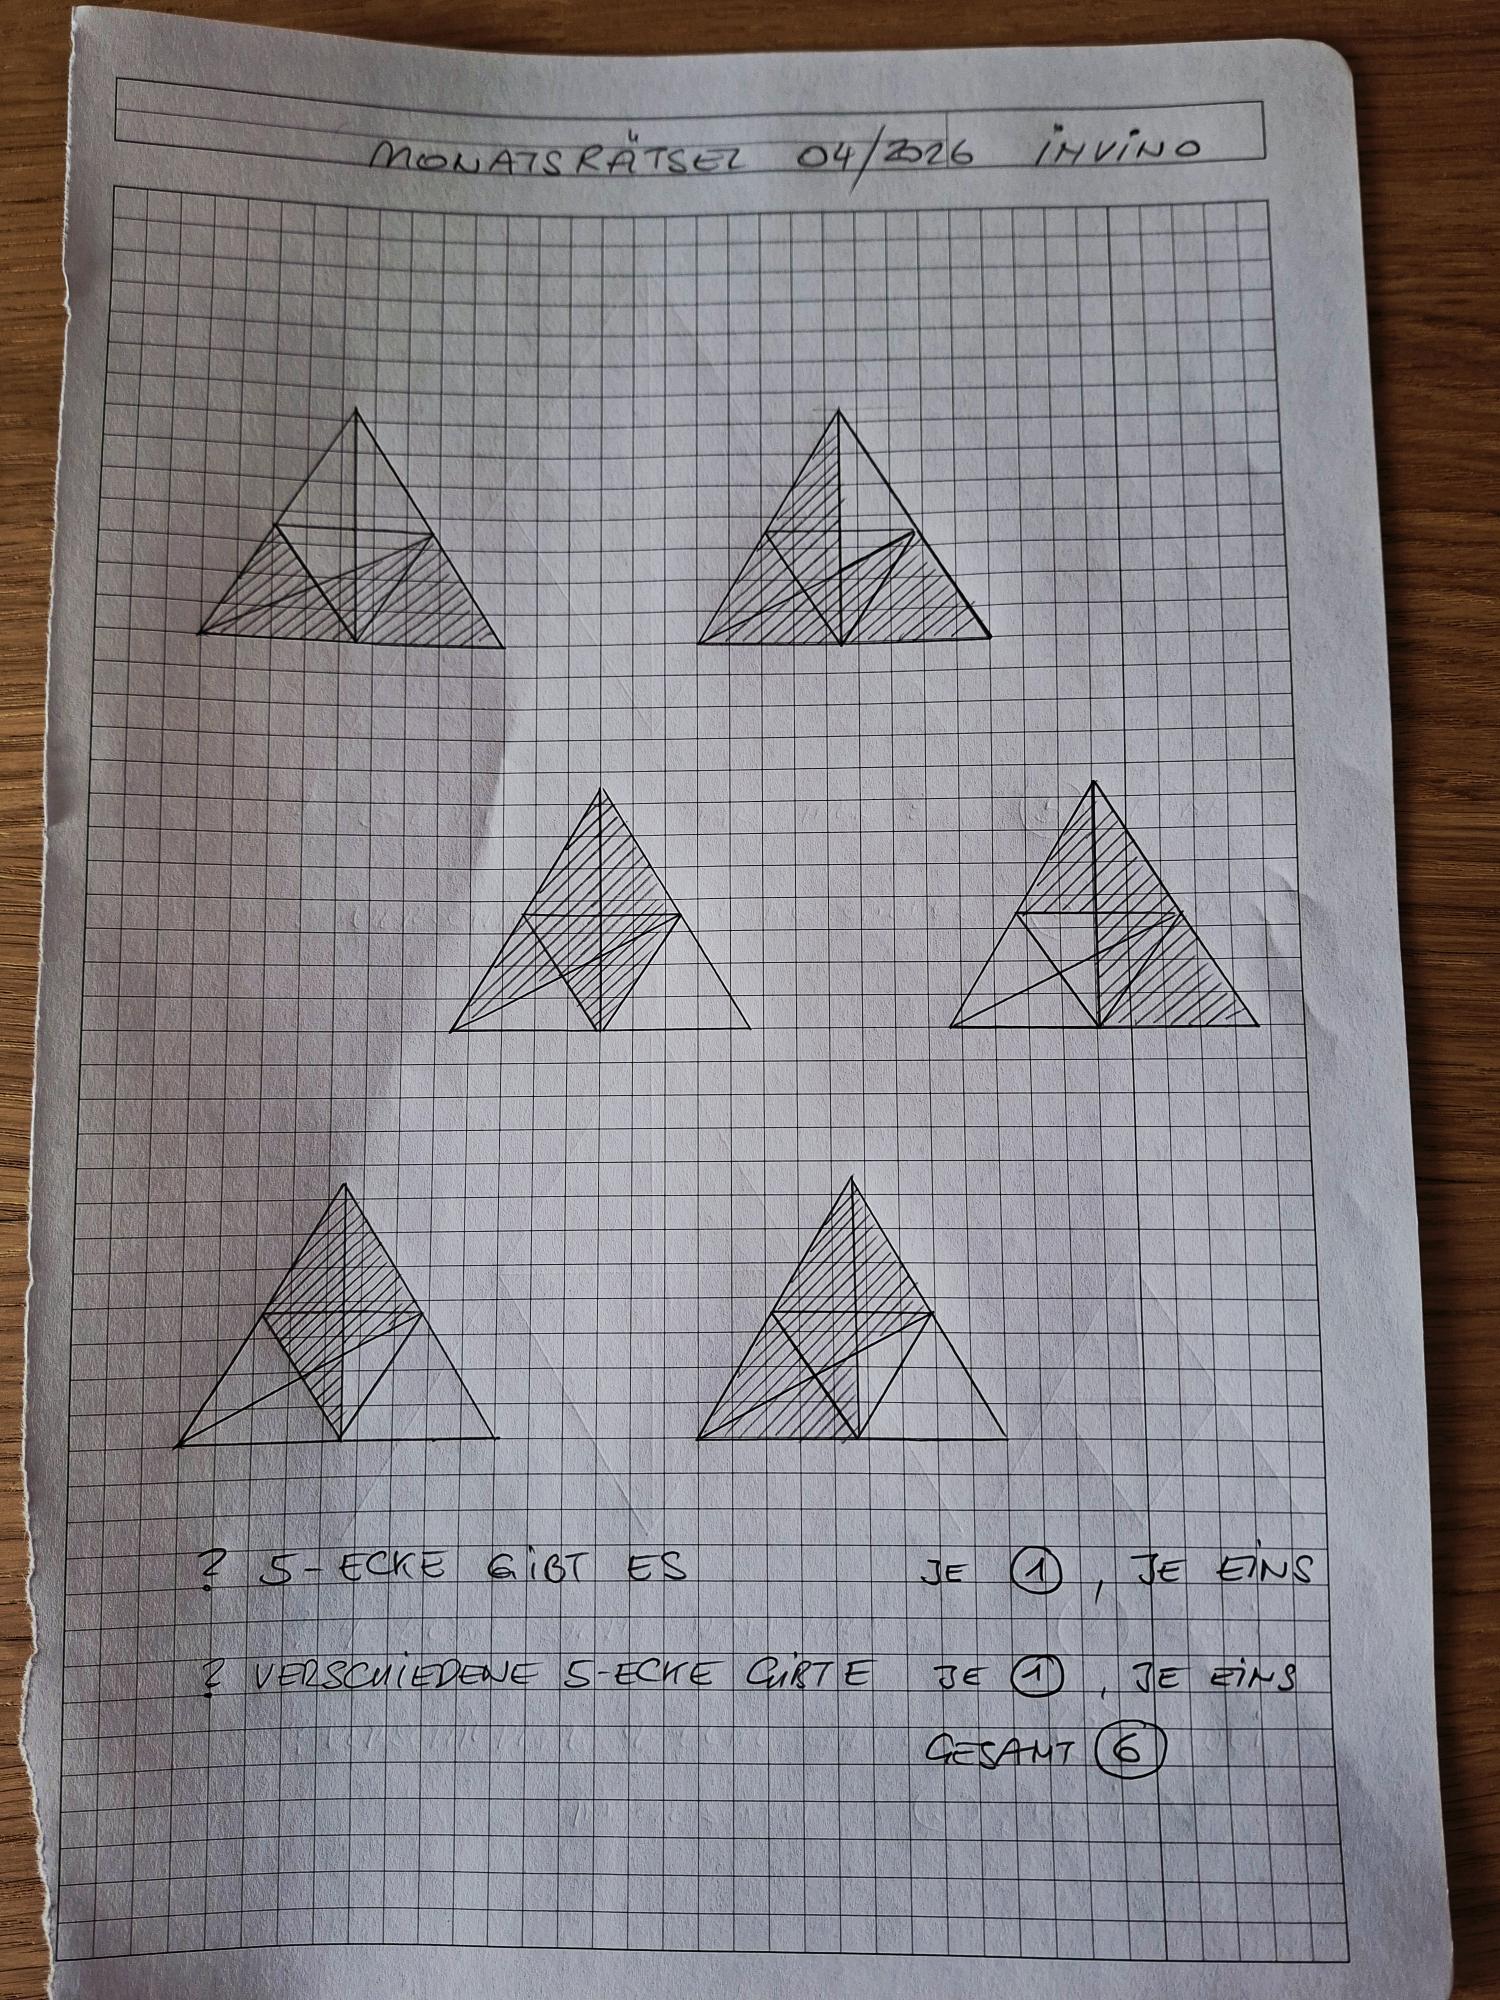 MONATSRÄTSEL 04/2026 INVINO
? 5-ECKE GIBT ES JE 1, JE EINS
? VERSCHIEDENE 5-ECKE GIBTE JE 1, JE EINS
GESAMT 6